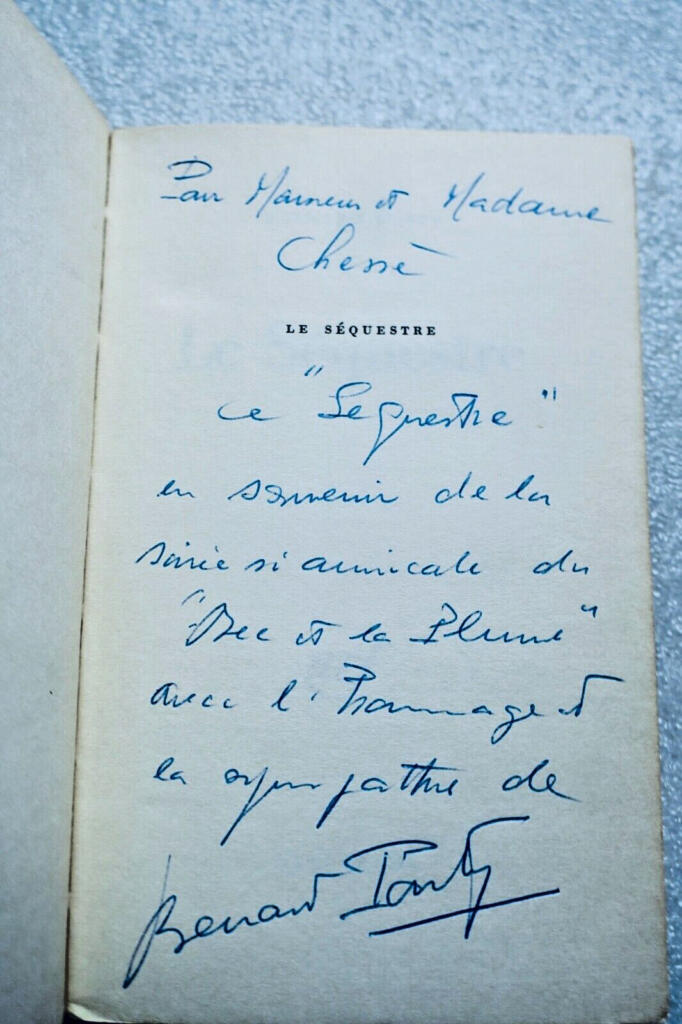 Pour Monsieur et Madame
Chessé
LE SÉQUESTRE
ce "Sequestre"
en souvenir de la
soirée si amicale du
"Bec et la Plume"
avec l'hommage et
la sympathie de
Bernard